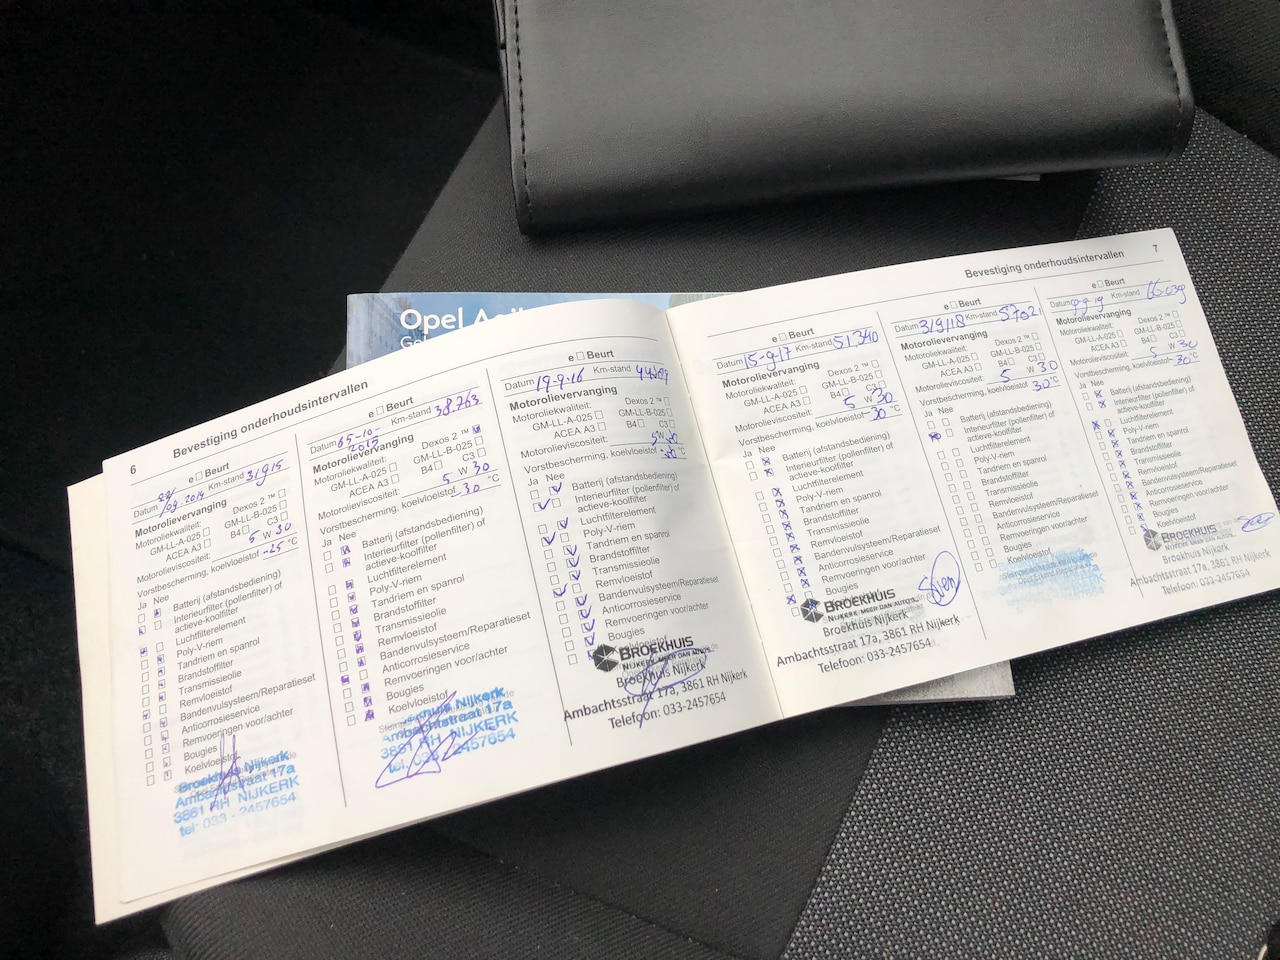 Opel
6
Bevestiging onderhoudsintervallen
e □ Beurt
Datum 22/09 2014 Km-stand 31915
Motorolievervanging
Motoroliekwaliteit: Dexos 2 ™
GM-LL-A-025 GM-LL-B-025
ACEA A3 B4 C3
Motorolieviscositeit: 5 W 30
Vorstbescherming, koelvloeistof -25 °C
Ja Nee
Batterij (afstandsbediening)
Interieurfilter (pollenfilter) of
actieve-koolfilter
Luchtfilterelement
Poly-V-riem
Tandriem en spanrol
Brandstoffilter
Transmissieolie
Remvloeistof
Bandenvulsysteem/Reparatieset
Anticorrosieservice
Remvoeringen voor/achter
Bougies
Koelvloeistof
Broekhuis Nijkerk
Ambachtstraat 17a
3861 RH NIJKERK
tel: 033 - 2457654
e □ Beurt
Datum 10-2015 Km-stand 38.763
Motorolievervanging
Motoroliekwaliteit: Dexos 2 ™
GM-LL-A-025 GM-LL-B-025
ACEA A3 B4 C3
Motorolieviscositeit: 5 W 30
Vorstbescherming, koelvloeistof 30 °C
Ja Nee
Batterij (afstandsbediening)
Interieurfilter (pollenfilter) of
actieve-koolfilter
Luchtfilterelement
Poly-V-riem
Tandriem en spanrol
Brandstoffilter
Transmissieolie
Remvloeistof
Bandenvulsysteem/Reparatieset
Anticorrosieservice
Remvoeringen voor/achter
Bougies
Koelvloeistof
Nijkerk
Ambachtstraat 17a
3861 RH NIJKERK
tel. 033 - 2457654
e □ Beurt
Datum 19-9-16 Km-stand
Motorolievervanging
Motoroliekwaliteit: Dexos 2 ™
GM-LL-A-025 GM-LL-B-025
ACEA A3 B4 C3
Motorolieviscositeit: 5 W 30
Vorstbescherming, koelvloeistof °C
Ja Nee
Batterij (afstandsbediening)
Interieurfilter (pollenfilter) of
actieve-koolfilter
Luchtfilterelement
Poly-V-riem
Tandriem en spanrol
Brandstoffilter
Transmissieolie
Remvloeistof
Bandenvulsysteem/Reparatieset
Anticorrosieservice
Remvoeringen voor/achter
Bougies
Koelvloeistof
BROEKHUIS
NIJKERK, MEER DAN AUTO'S.
Broekhuis Nijkerk
Ambachtsstraat 17a, 3861 RH Nijkerk
Telefoon: 033-2457654
7
Bevestiging onderhoudsintervallen
e □ Beurt
Datum 15-9-17 Km-stand 51.340
Motorolievervanging
Motoroliekwaliteit: Dexos 2 ™
GM-LL-A-025 GM-LL-B-025
ACEA A3 B4 C3
Motorolieviscositeit: 5 W 30
Vorstbescherming, koelvloeistof 30 °C
Ja Nee
Batterij (afstandsbediening)
Interieurfilter (pollenfilter) of
actieve-koolfilter
Luchtfilterelement
Poly-V-riem
Tandriem en spanrol
Brandstoffilter
Transmissieolie
Remvloeistof
Bandenvulsysteem/Reparatieset
Anticorrosieservice
Remvoeringen voor/achter
Bougies
BROEKHUIS
NIJKERK, MEER DAN AUTO'S.
Broekhuis Nijkerk
Ambachtsstraat 17a, 3861 RH Nijkerk
Telefoon: 033-2457654
e □ Beurt
Datum 3/9/18 Km-stand 57021
Motorolievervanging
Motoroliekwaliteit: Dexos 2 ™
GM-LL-A-025 GM-LL-B-025
ACEA A3 B4 C3
Motorolieviscositeit: 5 W 30
Vorstbescherming, koelvloeistof 30 °C
Ja Nee
Batterij (afstandsbediening)
Interieurfilter (pollenfilter) of
actieve-koolfilter
Luchtfilterelement
Poly-V-riem
Tandriem en spanrol
Brandstoffilter
Transmissieolie
Remvloeistof
Bandenvulsysteem/Reparatieset
Anticorrosieservice
Remvoeringen voor/achter
Bougies
Koelvloeistof
e □ Beurt
Datum Km-stand 66.039
Motorolievervanging
Motoroliekwaliteit: Dexos 2 ™
GM-LL-A-025 GM-LL-B-025
ACEA A3 B4 C3
Motorolieviscositeit: 5 W 30
Vorstbescherming, koelvloeistof 30 °C
Ja Nee
Batterij (afstandsbediening)
Interieurfilter (pollenfilter) of
actieve-koolfilter
Luchtfilterelement
Poly-V-riem
Tandriem en spanrol
Brandstoffilter
Transmissieolie
Remvloeistof
Bandenvulsysteem/Reparatieset
Anticorrosieservice
Remvoeringen voor/achter
Bougies
Koelvloeistof
BROEKHUIS
Broekhuis Nijkerk
Ambachtsstraat 17a, 3861 RH Nijkerk
Telefoon: 033-2457654